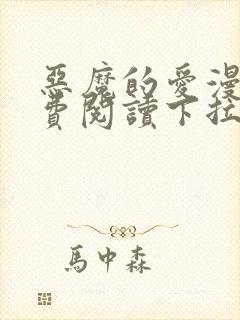 惡魔的愛漫
費閱讀下拉
馬中森